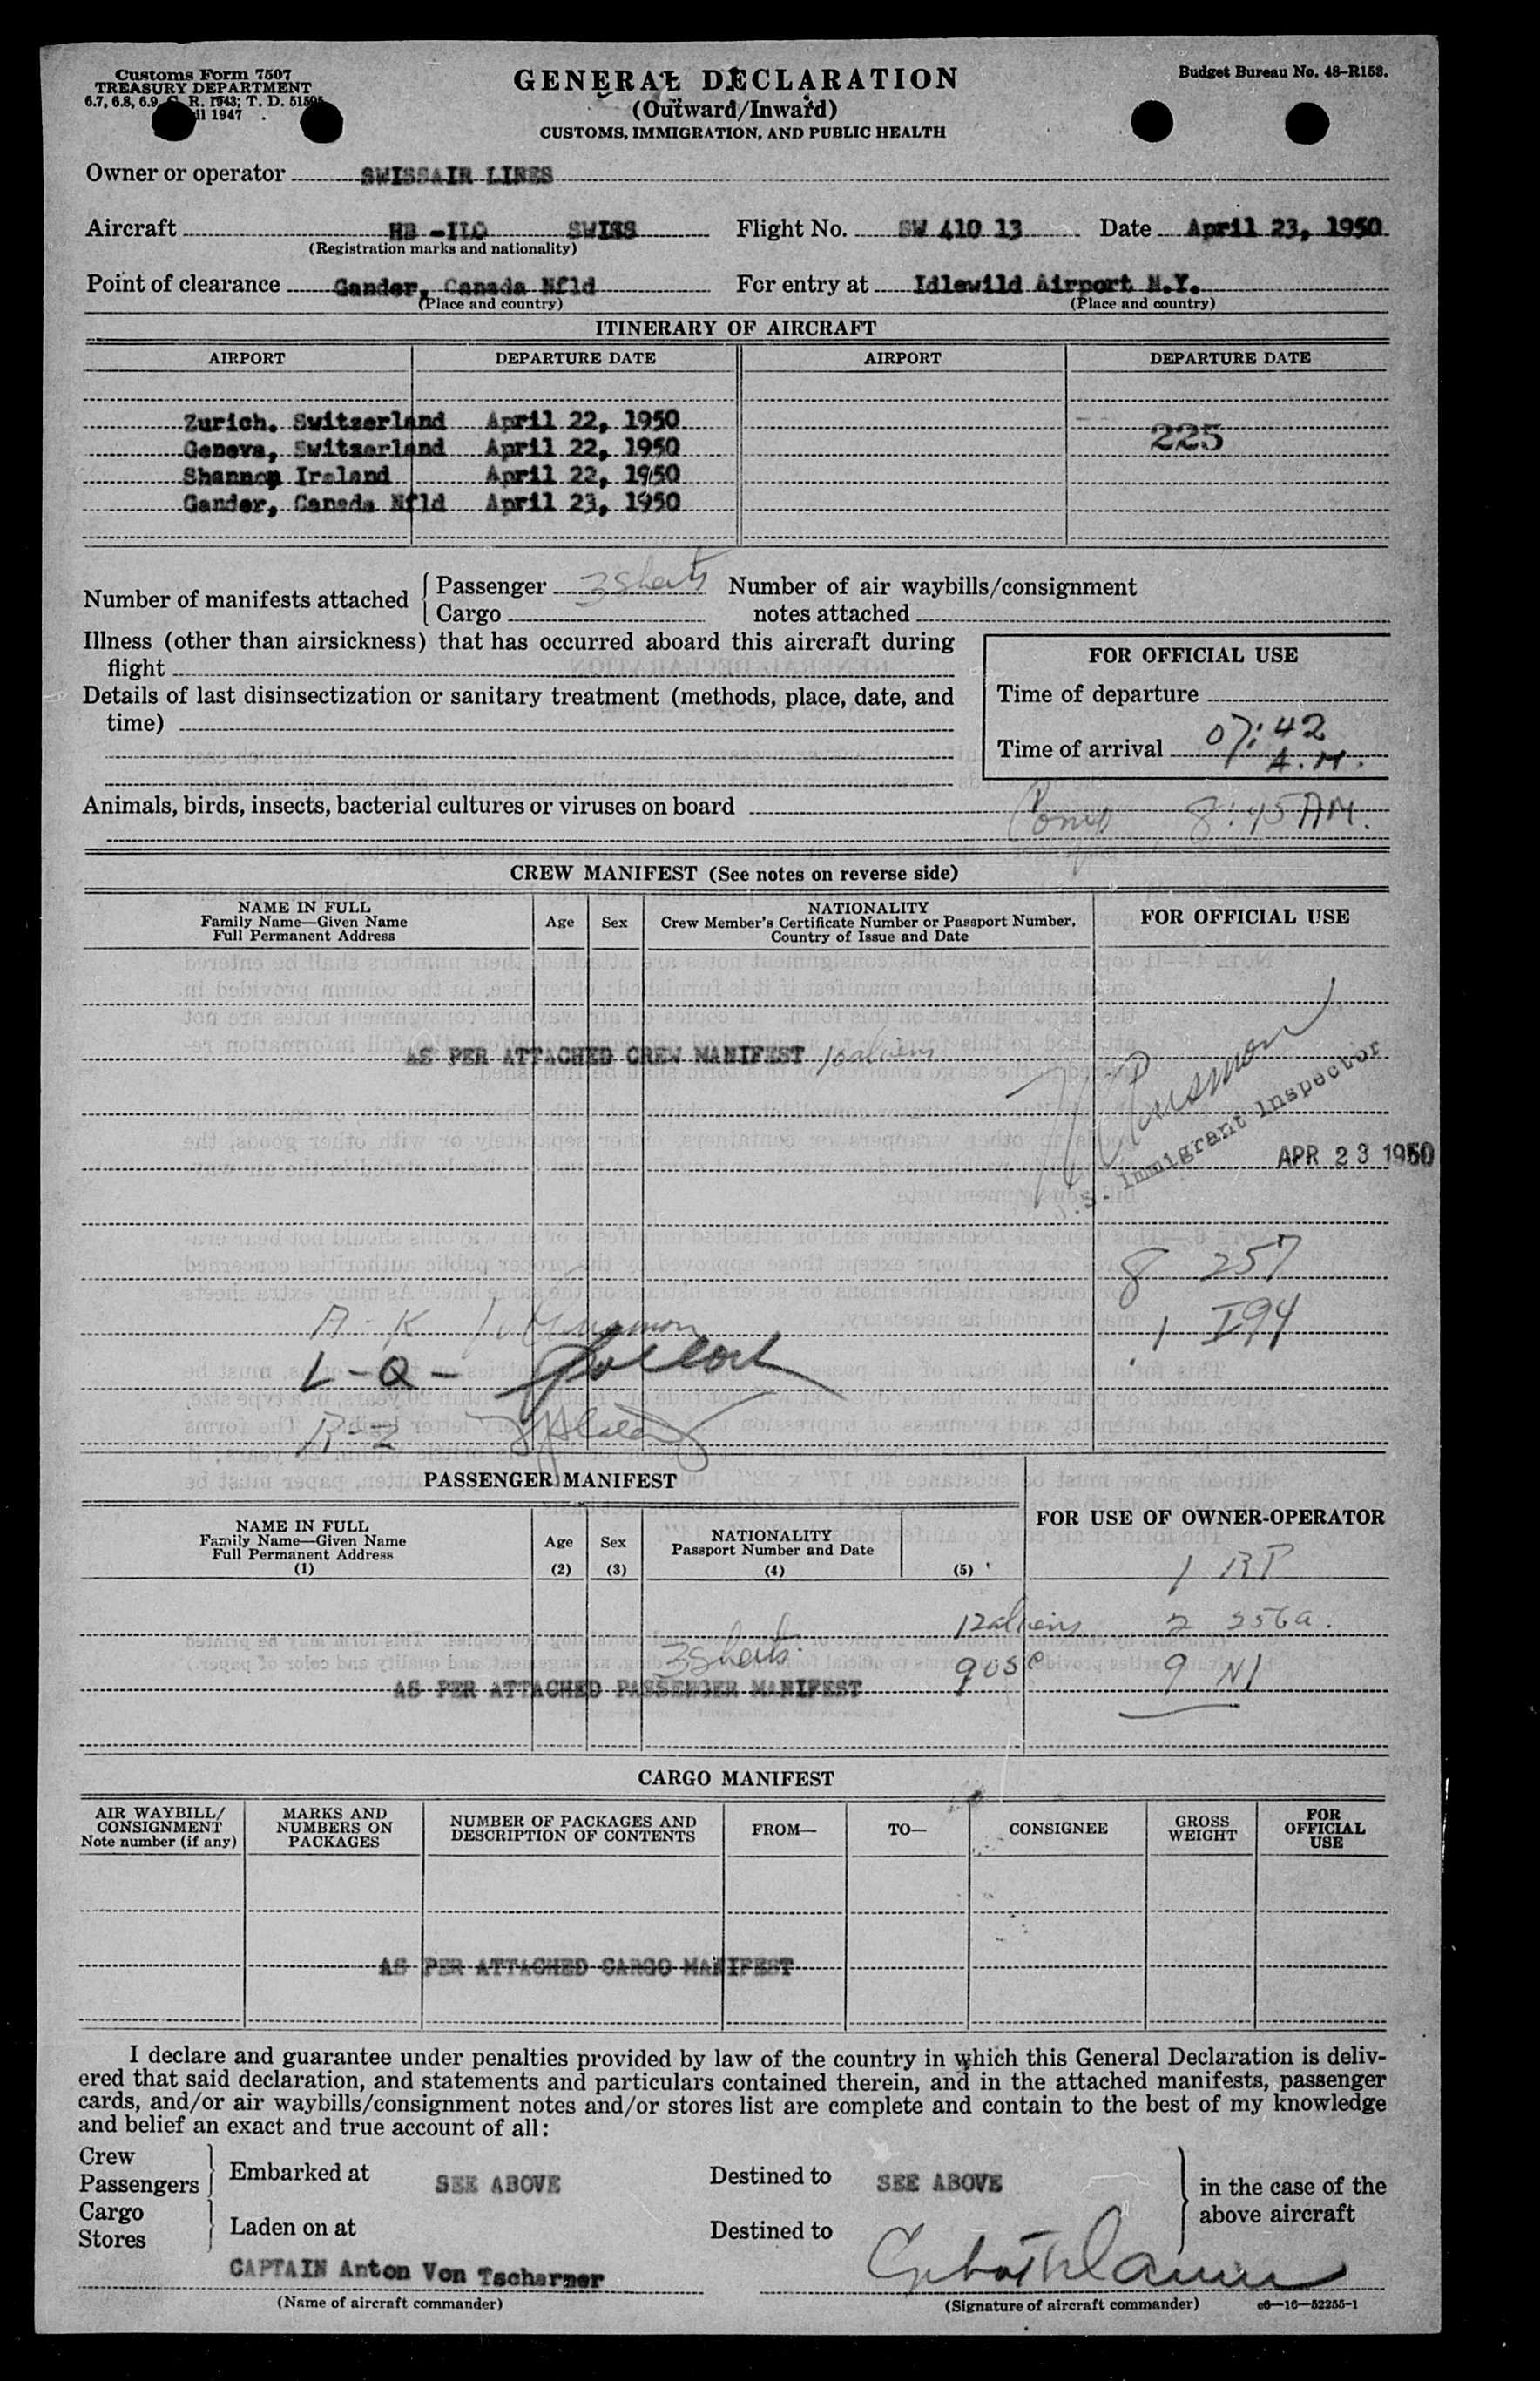 Customs Form 7507
TREASURY DEPARTMENT
6.7, 6.8, 6.9, C. R. 1943; T. D. 51595
1947
GENERAL DECLARATION
(Outward/Inward)
CUSTOMS, IMMIGRATION, AND PUBLIC HEALTH
Budget Bureau No. 48–R153.
Owner or operator SWISSAIR LINES
Aircraft HB -ILO SWISS Flight No. SW 410 13 Date April 23, 1950
(Registration marks and nationality)
Point of clearance Gander, Canada Nfld For entry at Idlewild Airport N.Y.
(Place and country) (Place and country)
ITINERARY OF AIRCRAFT
AIRPORT DEPARTURE DATE AIRPORT DEPARTURE DATE
Zurich. Switzerland April 22, 1950
225
Geneva, Switzerland April 22, 1950
Shannon Ireland April 22, 1950
Gander, Canada Nfld April 23, 1950
Number of manifests attached { Passenger 3 Sheets Number of air waybills/consignment
Cargo notes attached
Illness (other than airsickness) that has occurred aboard this aircraft during
flight
FOR OFFICIAL USE
Details of last disinsectization or sanitary treatment (methods, place, date, and
time)
Time of departure
Time of arrival 07:42
A.M.
Animals, birds, insects, bacterial cultures or viruses on board
8:45 AM.
CREW MANIFEST (See notes on reverse side)
NAME IN FULL
Family Name—Given Name
Full Permanent Address
Age Sex
NATIONALITY
Crew Member's Certificate Number or Passport Number,
Country of Issue and Date
FOR OFFICIAL USE
AS PER ATTACHED CREW MANIFEST 10 aliens
U.S. Immigrant Inspector
APR 23 1950
8 257
1 I94
A - K
L - Q -
R - Z
PASSENGER MANIFEST
FOR USE OF OWNER-OPERATOR
NAME IN FULL
Family Name—Given Name
Full Permanent Address
(1)
Age
(2)
Sex
(3)
NATIONALITY
Passport Number and Date
(4)
(5)
1 RP
12 aliens 2 256a.
3 Sheets 9 USC 9 NI
AS PER ATTACHED PASSENGER MANIFEST
CARGO MANIFEST
AIR WAYBILL/
CONSIGNMENT
Note number (if any)
MARKS AND
NUMBERS ON
PACKAGES
NUMBER OF PACKAGES AND
DESCRIPTION OF CONTENTS
FROM—
TO—
CONSIGNEE
GROSS
WEIGHT
FOR
OFFICIAL
USE
AS PER ATTACHED CARGO MANIFEST
I declare and guarantee under penalties provided by law of the country in which this General Declaration is deliv-
ered that said declaration, and statements and particulars contained therein, and in the attached manifests, passenger
cards, and/or air waybills/consignment notes and/or stores list are complete and contain to the best of my knowledge
and belief an exact and true account of all:
Crew
Passengers } Embarked at SEE ABOVE Destined to SEE ABOVE
Cargo
Stores } Laden on at Destined to
in the case of the
above aircraft
CAPTAIN Anton Von Tscharner
(Name of aircraft commander) (Signature of aircraft commander) c6—16—52255-1